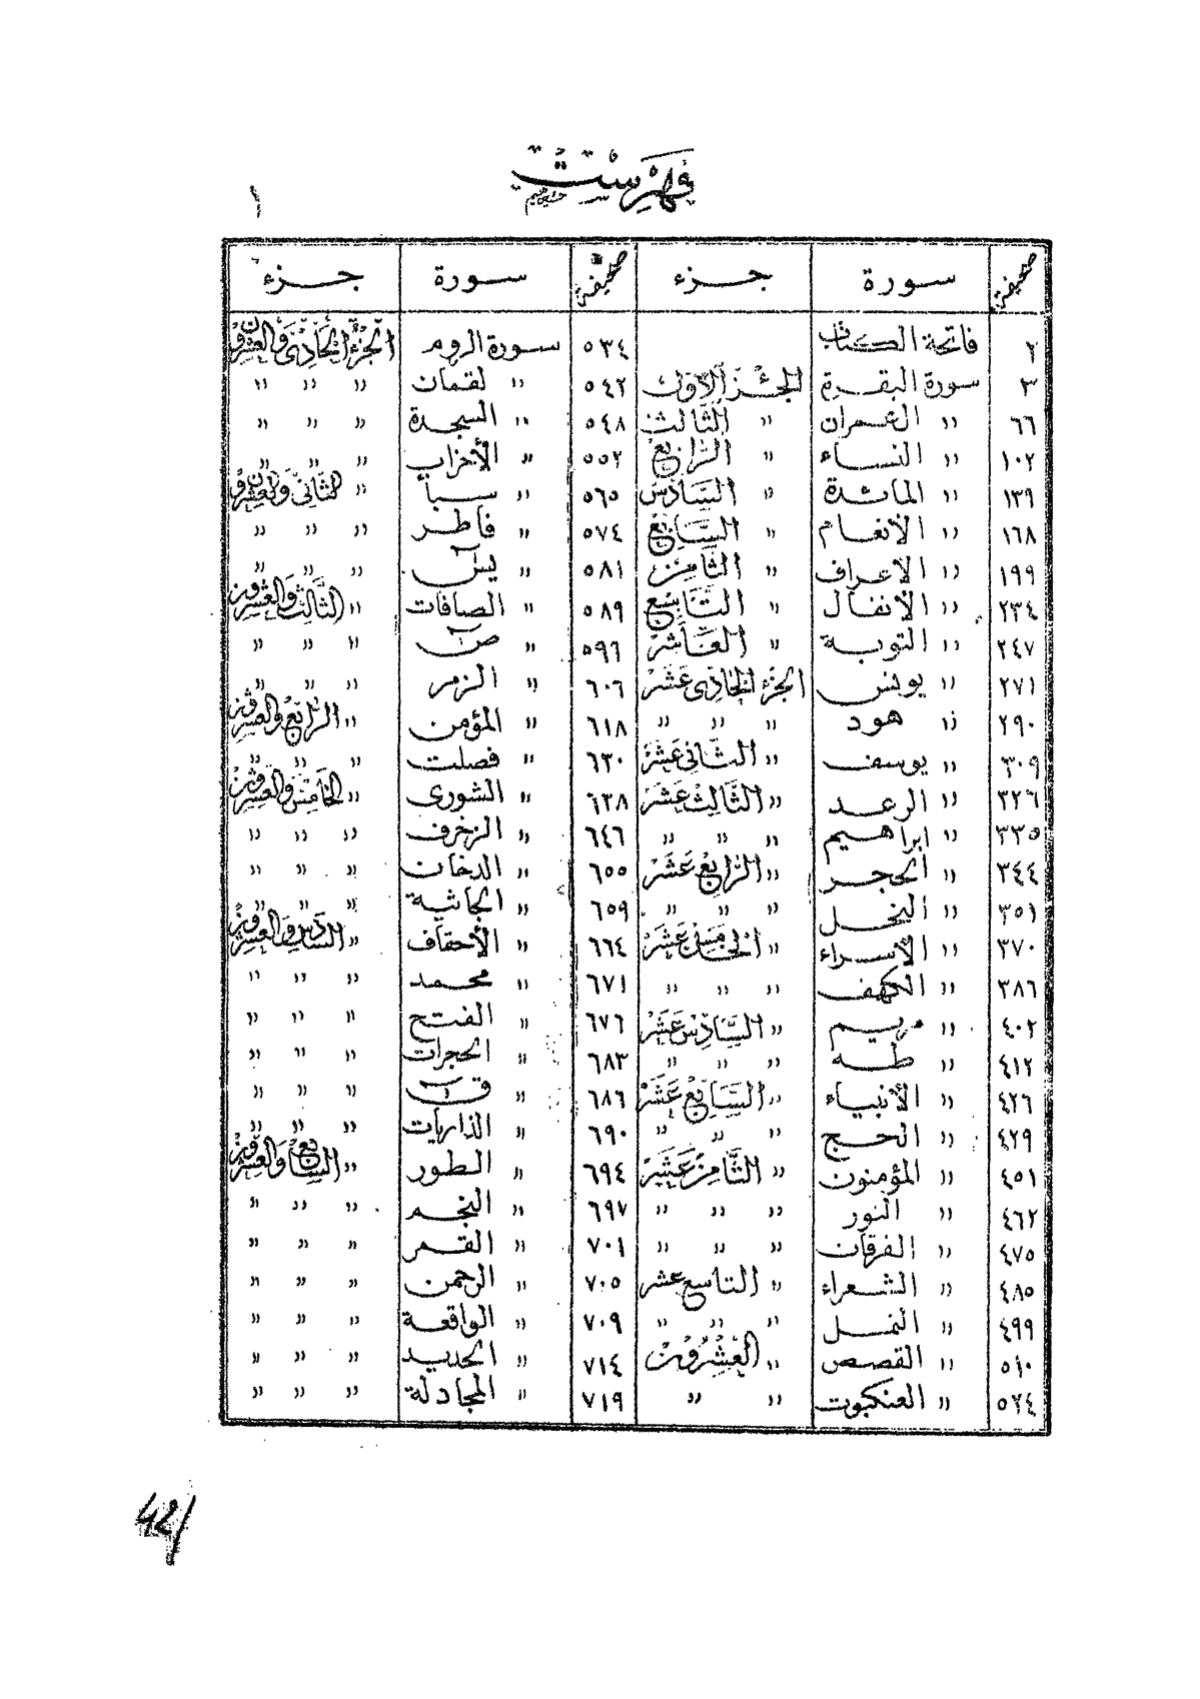 فهرست
١
صحيفة سورة جزء صحيفة سورة جزء
٢ فاتحة الكتاب ٥٣٤ سورة الروم الجزء الحادى والعشرون
٣ سورة البقرة الجزء الاول ٥٤٢ " لقمان " " "
٦٦ " العمران " الثالث ٥٤٨ " السجدة " " "
١٠٢ " النساء " الرابع ٥٥٢ " الأحزاب " " "
١٣٩ " المائدة " السادس ٥٦٥ " سبأ " الثانى والعشرون
١٦٨ " الانعام " السابع ٥٧٤ " فاطر " " "
١٩٩ " الاعراف " الثامن ٥٨١ " يس " " "
٢٣٤ " الانفال " التاسع ٥٨٩ " الصافات " الثالث والعشرون
٢٤٧ " التوبة " العاشر ٥٩٦ " ص " " "
٢٧١ " يونس الجزء الحادى عشر ٦٠٦ " الزمر " " "
٢٩٠ " هود " " " ٦١٨ " المؤمن " الرابع والعشرون
٣٠٩ " يوسف " الثانى عشر ٦٣٠ " فصلت " " "
٣٢٦ " الرعد " الثالث عشر ٦٣٨ " الشورى " الخامس والعشرون
٣٣٥ " ابراهيم " " " ٦٤٦ " الزخرف " " "
٣٤٤ " الحجر " الرابع عشر ٦٥٥ " الدخان " " "
٣٥١ " النحل " " " ٦٥٩ " الجاثية " " "
٣٧٠ " الأسراء " الخامس عشر ٦٦٤ " الأحقاف " السادس والعشرون
٣٨٦ " الكهف " " " ٦٧١ " محمد " " "
٤٠٢ " مريم " السادس عشر ٦٧٦ " الفتح " " "
٤١٢ " طه " " " ٦٨٣ " الحجرات " " "
٤٢٦ " الأنبياء " السابع عشر ٦٨٦ " ق " " "
٤٣٩ " الحج " " " ٦٩٠ " الذاريات " " "
٤٥١ " المؤمنون " الثامن عشر ٦٩٤ " الطور " السابع والعشرون
٤٦٢ " النور " " " ٦٩٧ " النجم " " "
٤٧٥ " الفرقان " " " ٧٠١ " القمر " " "
٤٨٥ " الشعراء " التاسع عشر ٧٠٥ " الرحمن " " "
٤٩٩ " النمل " " " ٧٠٩ " الواقعة " " "
٥١٠ " القصص " العشرون ٧١٤ " الحديد " " "
٥٢٤ " العنكبوت " " ٧١٩ " المجادلة " " "
42/